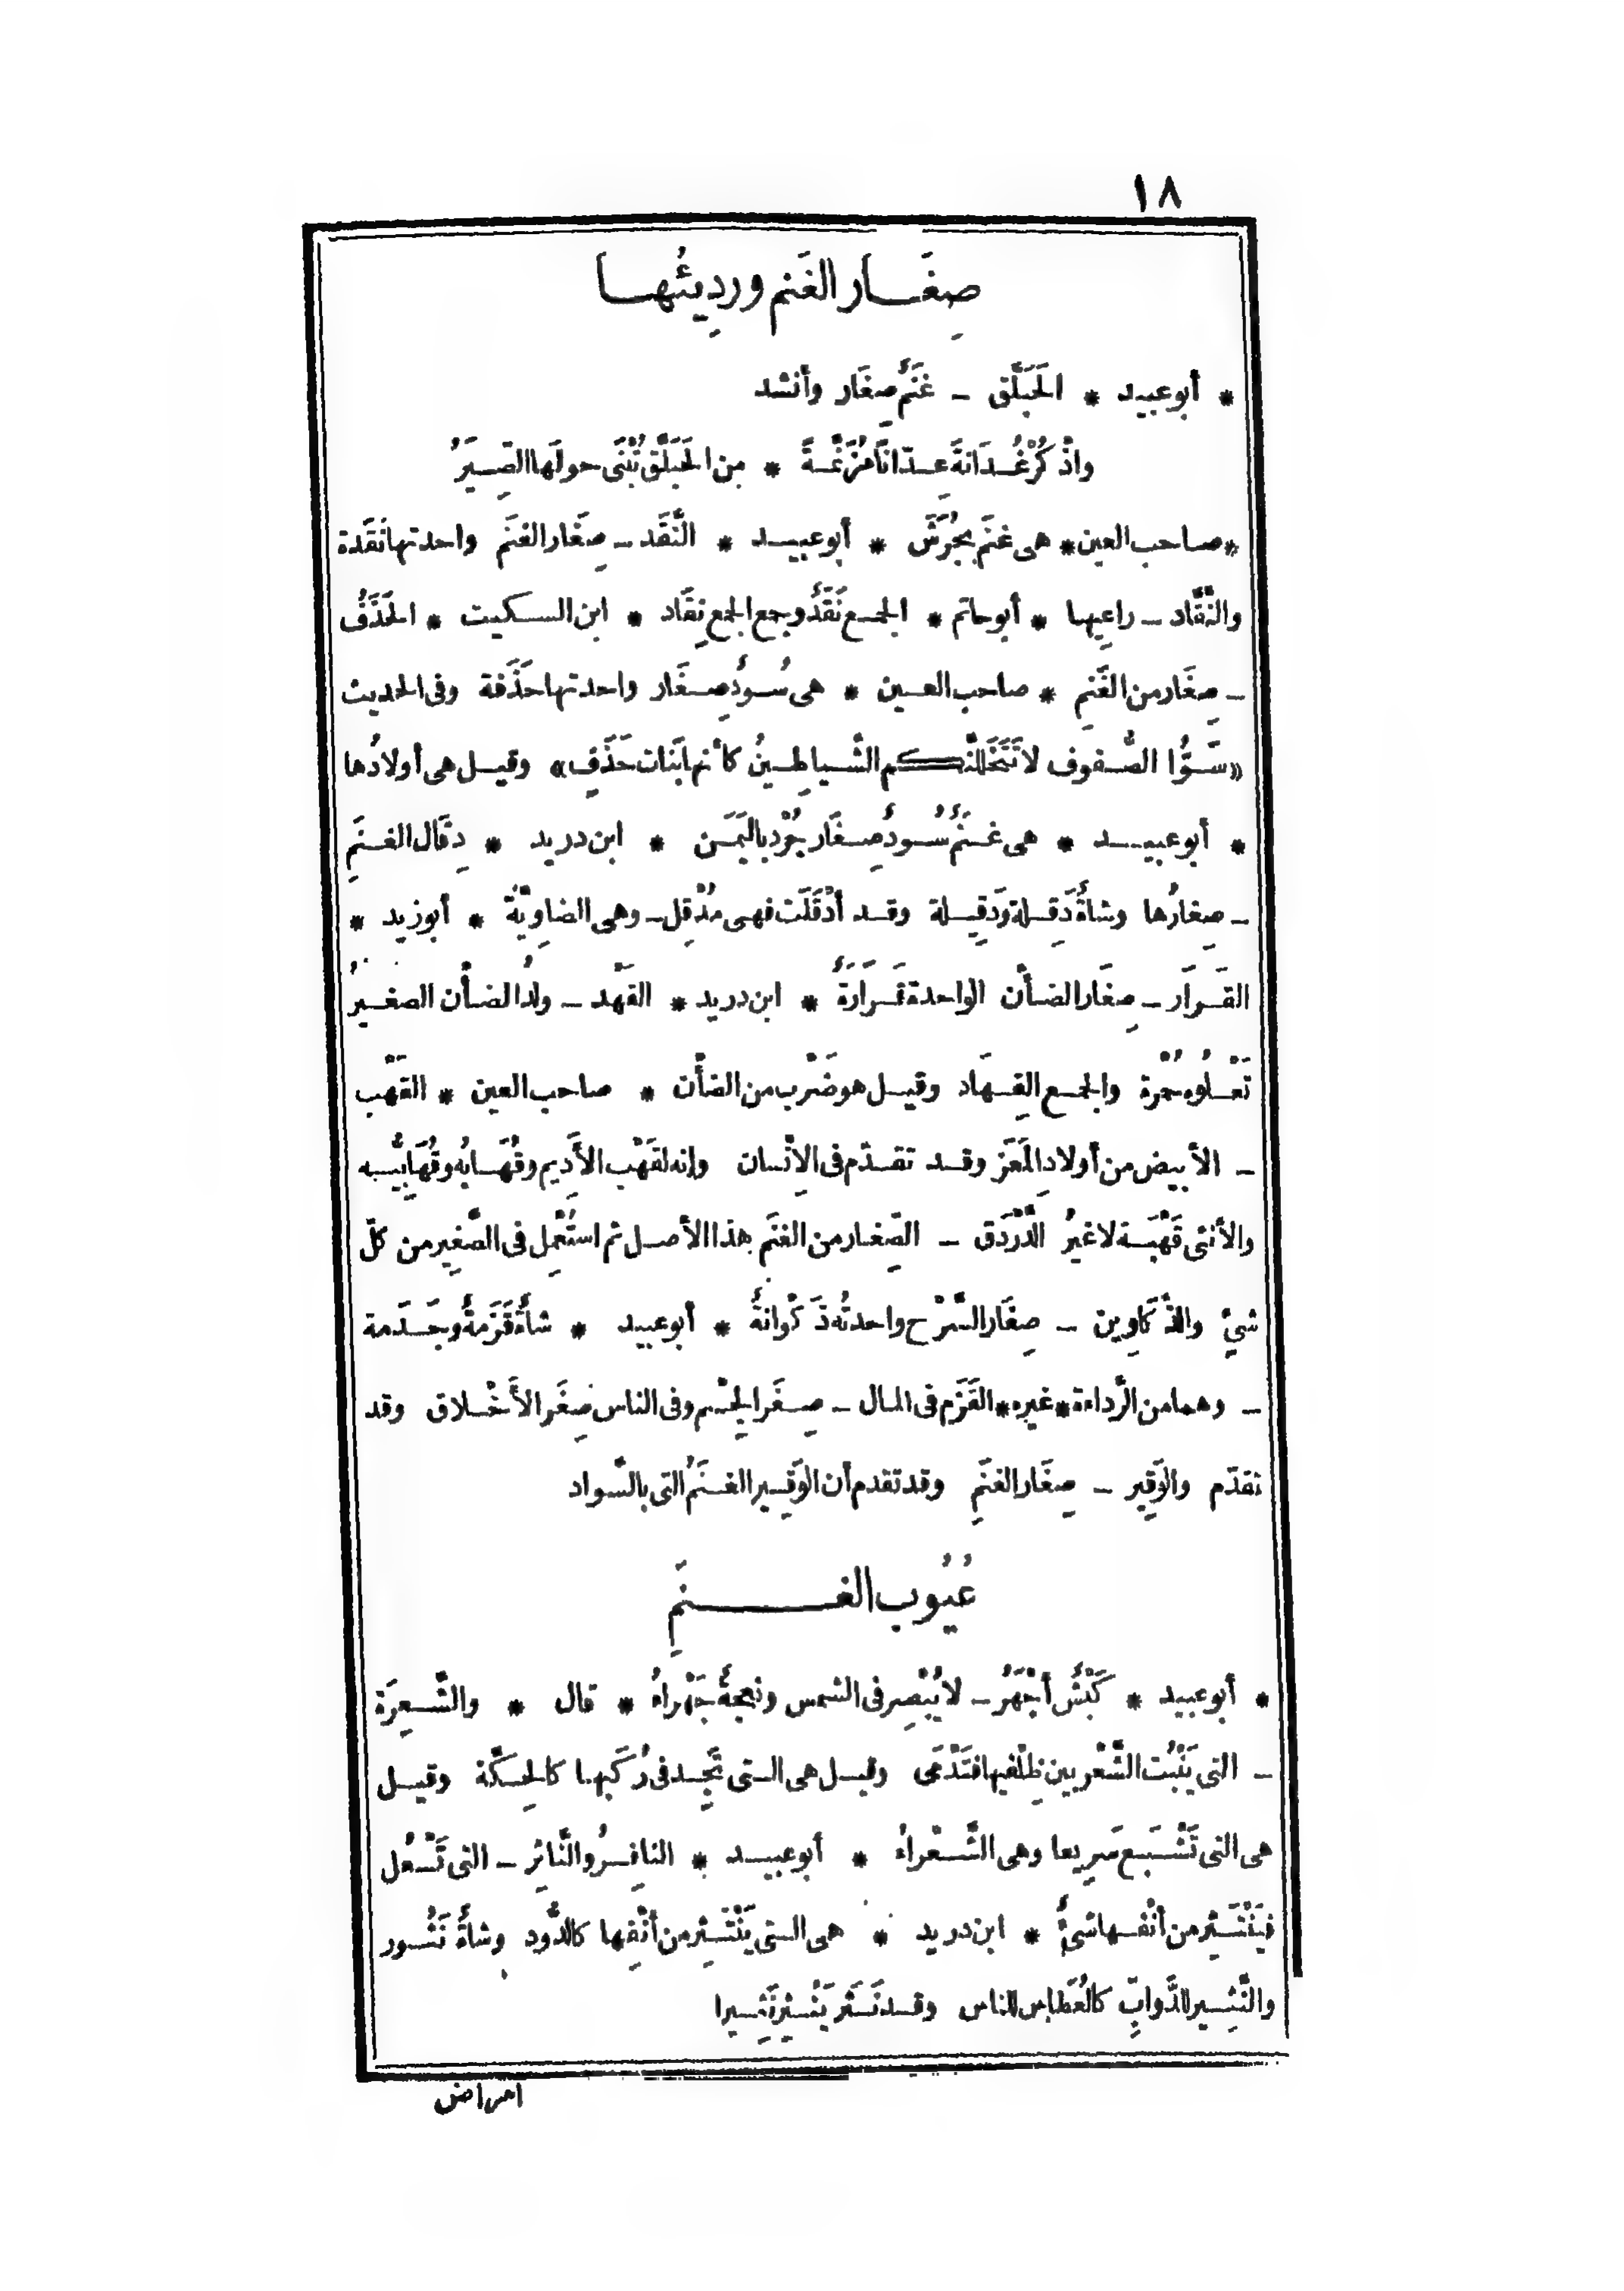 ١٨
صِغَار الغَنم ورديئُها
* أبو عبيد * الحَبَلَّق - غَنَمٌ صِغَار وأنشد
واذْكُرْ غُدَانةَ عِدّانًا مُزَنَّمةً * من الحَبَلَّق تُبْنَى حولَها الصِّيَرُ
* صاحب العين * هى غنَم بجُرَشَ * أبو عبيد * النَّقَد - صِغَار الغنَم واحدتها نَقَدة
والنَّقَّاد - راعِيها * أبو حاتم * الجمع نَقَدٌ وجمع الجمع نِقَاد * ابن السكيت * الحَذَفُ
- صِغَار من الغَنمِ * صاحب العين * هى سُودٌ صِغَار واحدتها حَذَفة وفى الحديث
«سَوُّا الصُّفوف لا تَتَخَلَّلنَّكم الشَّياطِينُ كأنها بَنات حَذَفٍ» وقيل هى أولادُها
* أبو عبيد * هى غَنَمٌ سُودٌ صِغَار جُرْد باليَمَن * ابن دريد * دِقَال الغنَمِ
- صِغارُها وشاةٌ دَقِلة ودَقِيلة وقد أدْقَلَت فهى مُدْقِل - وهى الضاوِيَّةُ * أبو زيد *
القَرَار - صِغَار الضأن الواحدة قَرَارَةٌ * ابن دريد * القَهْد - ولدُ الضأن الصغيرُ
تَعْلُوه حُمْرة والجمع القِهَاد وقيل هو ضَرْب من الضأن * صاحب العين * القَهْب
- الأبيض من أولادِ المَعَز وقد تقدّم فى الاِنْسان وإنه لقَهْب الأَدِيم وقُهَابُه وقُهَابِيُّه
والأنثى قَهْبَة لا غيرُ الدَّرْدَق - الصِّغار من الغنَم هذا الأصل ثم استُعْمِل فى الصَّغِير من كلّ
شىٍٔ والذَّكَاوِين - صِغَار السَّرْح واحدتُه ذَكْوانةٌ * أبو عبيد * شاةٌ قَزَمةٌ وجَدَمة
- وهما من الرَّداءة * غيره * القَزَم فى المال - صِغَر الجِسْم وفى الناس صِغَر الأَخْلاق وقد
تقدّم والوَقِير - صِغَار الغنَمِ وقد تقدم أن الوَقِير الغنَمُ التى بالسَّواد
عُيُوب الغنَمِ
* أبو عبيد * كَبْشٌ أجْهَرُ - لا يُبْصِر فى الشمس ونعجةٌ جَهْراءُ * قال * والشَّعِرَة
- التى يَنْبُت الشَّعْر بين ظِلْفيها فتَدْمَى وقيل هى التى تَجِد فى رُكَبها كالحِكَّة وقيل
هى التى تَشْبَع سَرِيعا وهى الشَّعْراءُ * أبو عبيد * النافِرُ والنَّاثِر - التى تَسْعُل
فيَنْتَثِر من أنْفها شىءٌ * ابن دريد * هى التى يَنْتَثِر من أنْفِها كالدُّود وشاةٌ نَثُور
والنَّثِير للدَّوابِّ كالعُطَاس للناس وقد نَثَر يَنْثِر نَثِيرا
امراض